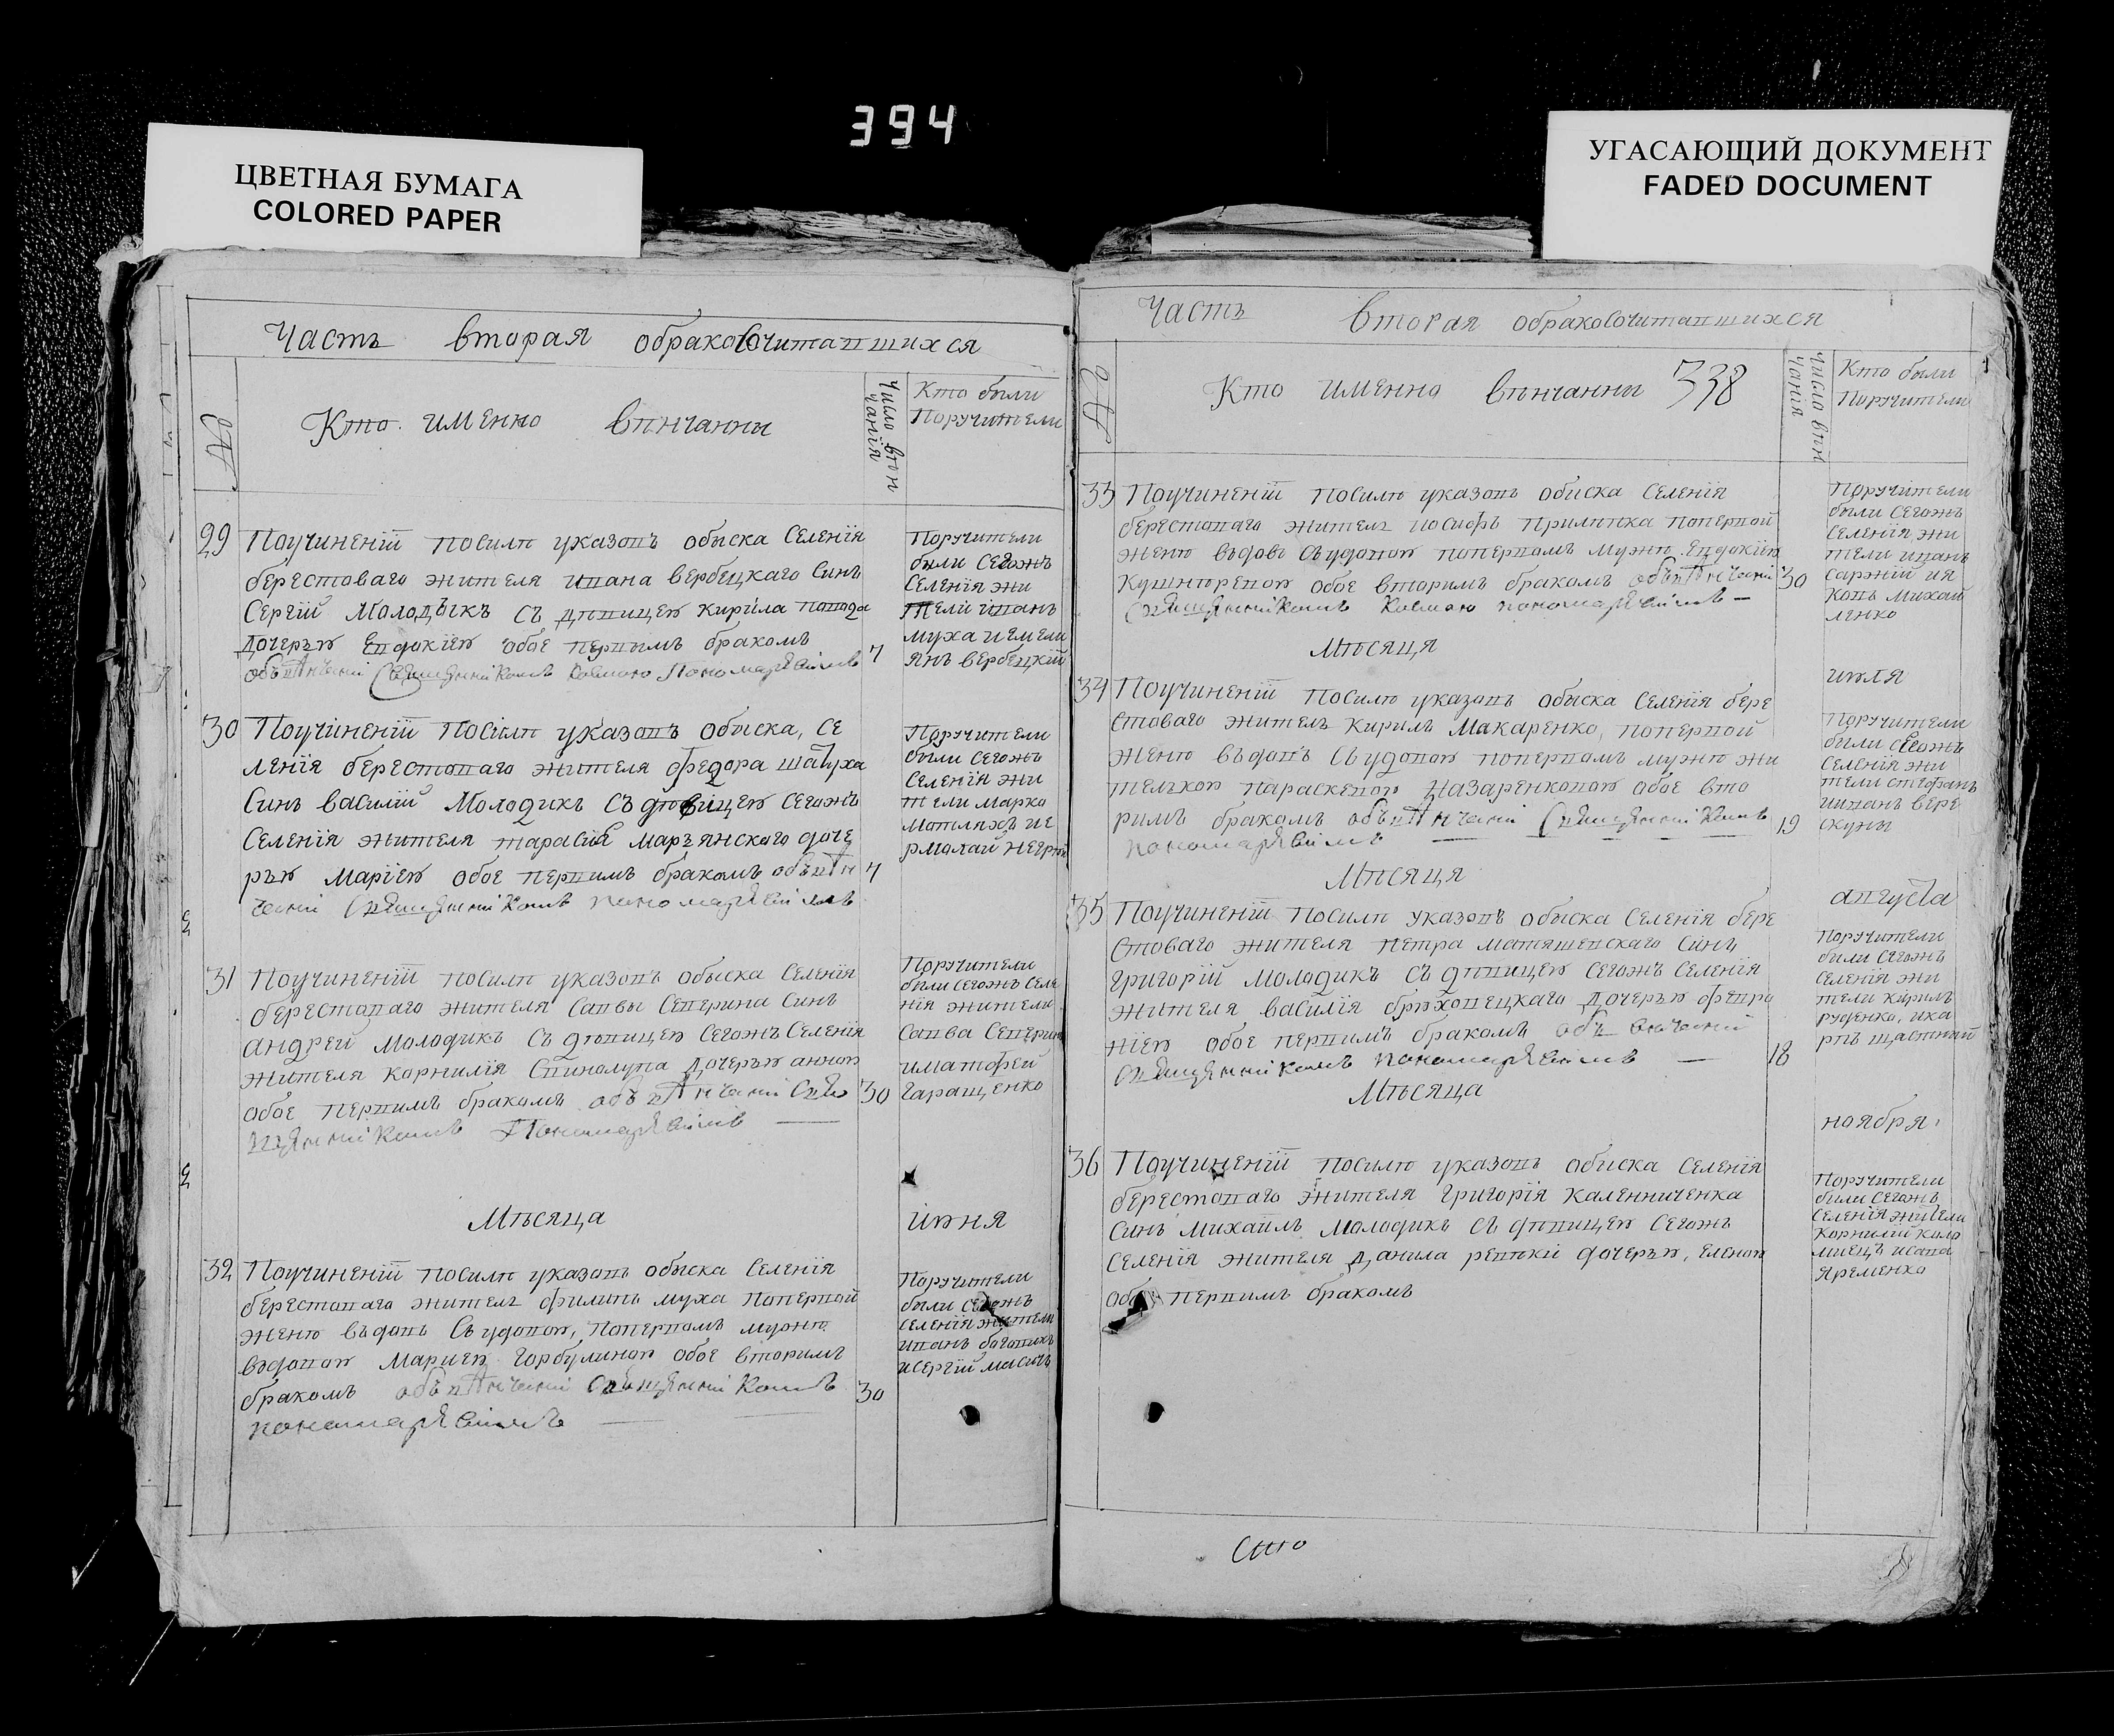 394
ЦВЕТНАЯ БУМАГА
COLORED PAPER
УГАСАЮЩИЙ ДОКУМЕНТ
FADED DOCUMENT
Часть вторая обраковочитавшихся
№
Кто именно вѣнчанны
Число вѣн
чанїя
Кто были
Поручители
29
Поучиненїй посилѣ указовъ обыска Селенїя
берестоваго жителя ивана вербецкаго Синъ
Сергїй Молодыкъ съ дѣвицею кирила
дочерью Евдокїею обое первымъ бракомъ
обвѣнчани Священнікомъ Козмою Пономаревімъ
7
Поручители
были Сегожъ
Селенїя жи
тели иванъ
муха и Емели
янъ вербецкїй
30
Поучиненїй посілѣ указовъ обыска, Се
ленїя берестоваго жителя федора шатуха
Синъ василїй Молодикъ съ дѣвицею Сегожъ
Селенїя жителя тарасия марьянскаго доче
рью Марїею обое первимъ бракомъ обвѣн
чені Священнікомъ пономаревімъ
7
Поручители
были Сегожъ
Селенїя жи
тели марко
мотляхъ и Е
рмолай
31
Поучиненїй посилѣ указовъ обыска Селенїя
берестоваго жителя Саввы Северина Синъ
андрей молодикъ съ дѣвицею Сегожъ Селенїя
жителя корнилїя Спинолупа дочерью анною
обое первимъ бракомъ обвѣнчені Свя
щенникомъ Пономаревімъ
30
Поручители
были Сегожъ Селе
нїя жители
Савва Северин
и матфей
Гаращенко
Мѣсяца
июня
32
Поучиненїй посилѣ указовъ обыска Селенїя
берестоваго жителъ филипъ муха поперво­й
женѣ вдовъ Съ удовою, попервомъ мужѣ
вдовою Мариею Горбулиною обое вторимъ
бракомъ обвѣнчені Священнікомъ
пономаревімъ
30
Поручители
были Сегожъ
Селенїя жители
иванъ
и Сергїй масичъ
Часть вторая обраковочитавшихся
№
Кто именно вѣнчанни 338
Число вѣн
чания
Кто были
Поручители
33
Поучиненїй посилѣ указовъ обиска Селенїя
берестоваго жителъ иосифъ прилипка поперво­й
женѣ вдовъ Съ удовою попервомъ мужѣ Евдокїею
обое вторимъ бракомъ обвѣнчені
Священнікомъ Козмою пономаревімъ
30
Поручители
были Сегожъ
Селенїя жи
тели иванъ
саржїй и я
ковъ михай
ленко
Мѣсяца
июля
34
Поучиненїй посилѣ указовъ обыска Селенїя бере
стоваго жителъ кирилъ Макаренко, поперво­й
женѣ вдовъ Съ удовою попервомъ мужѣ жи
телькою параскевою Назаренковою обое вто
римъ бракомъ обвѣнчені Священнікомъ
пономаревімъ
19
Поручители
были сегожъ
селенїя жи
тели стефанъ
и иванъ вере
скуны
Мѣсяца
августа
35
Поучиненїй посилѣ указовъ обыска Селенїя бере
стоваго жителя петра матяшевскаго Синъ
григорїй молодикъ съ дѣвицею сегожъ Селенїя
жителя василїя брюховецкаго дочерью февро
нїею обое первимъ бракомъ обвѣнчені
Священнікомъ пономаревімъ
18
Поручители
были сегожъ
Селенїя жи
тели кирилъ
руденко, и ка
рпъ щастний
Мѣсяца
ноября.
36
Поучиненїй посилѣ указовъ обиска Селенїя
берестоваго жителя григорїя каленниченка
Синъ михаилъ молодикъ съ дѣвицею Сегожъ
Селенїя жителя данила репѣки дочерью, еленою
обое первимъ бракомъ
Поручители
были Сегожъ
Селенїя жители
корнилий коло
миецъ и сава
Яременко